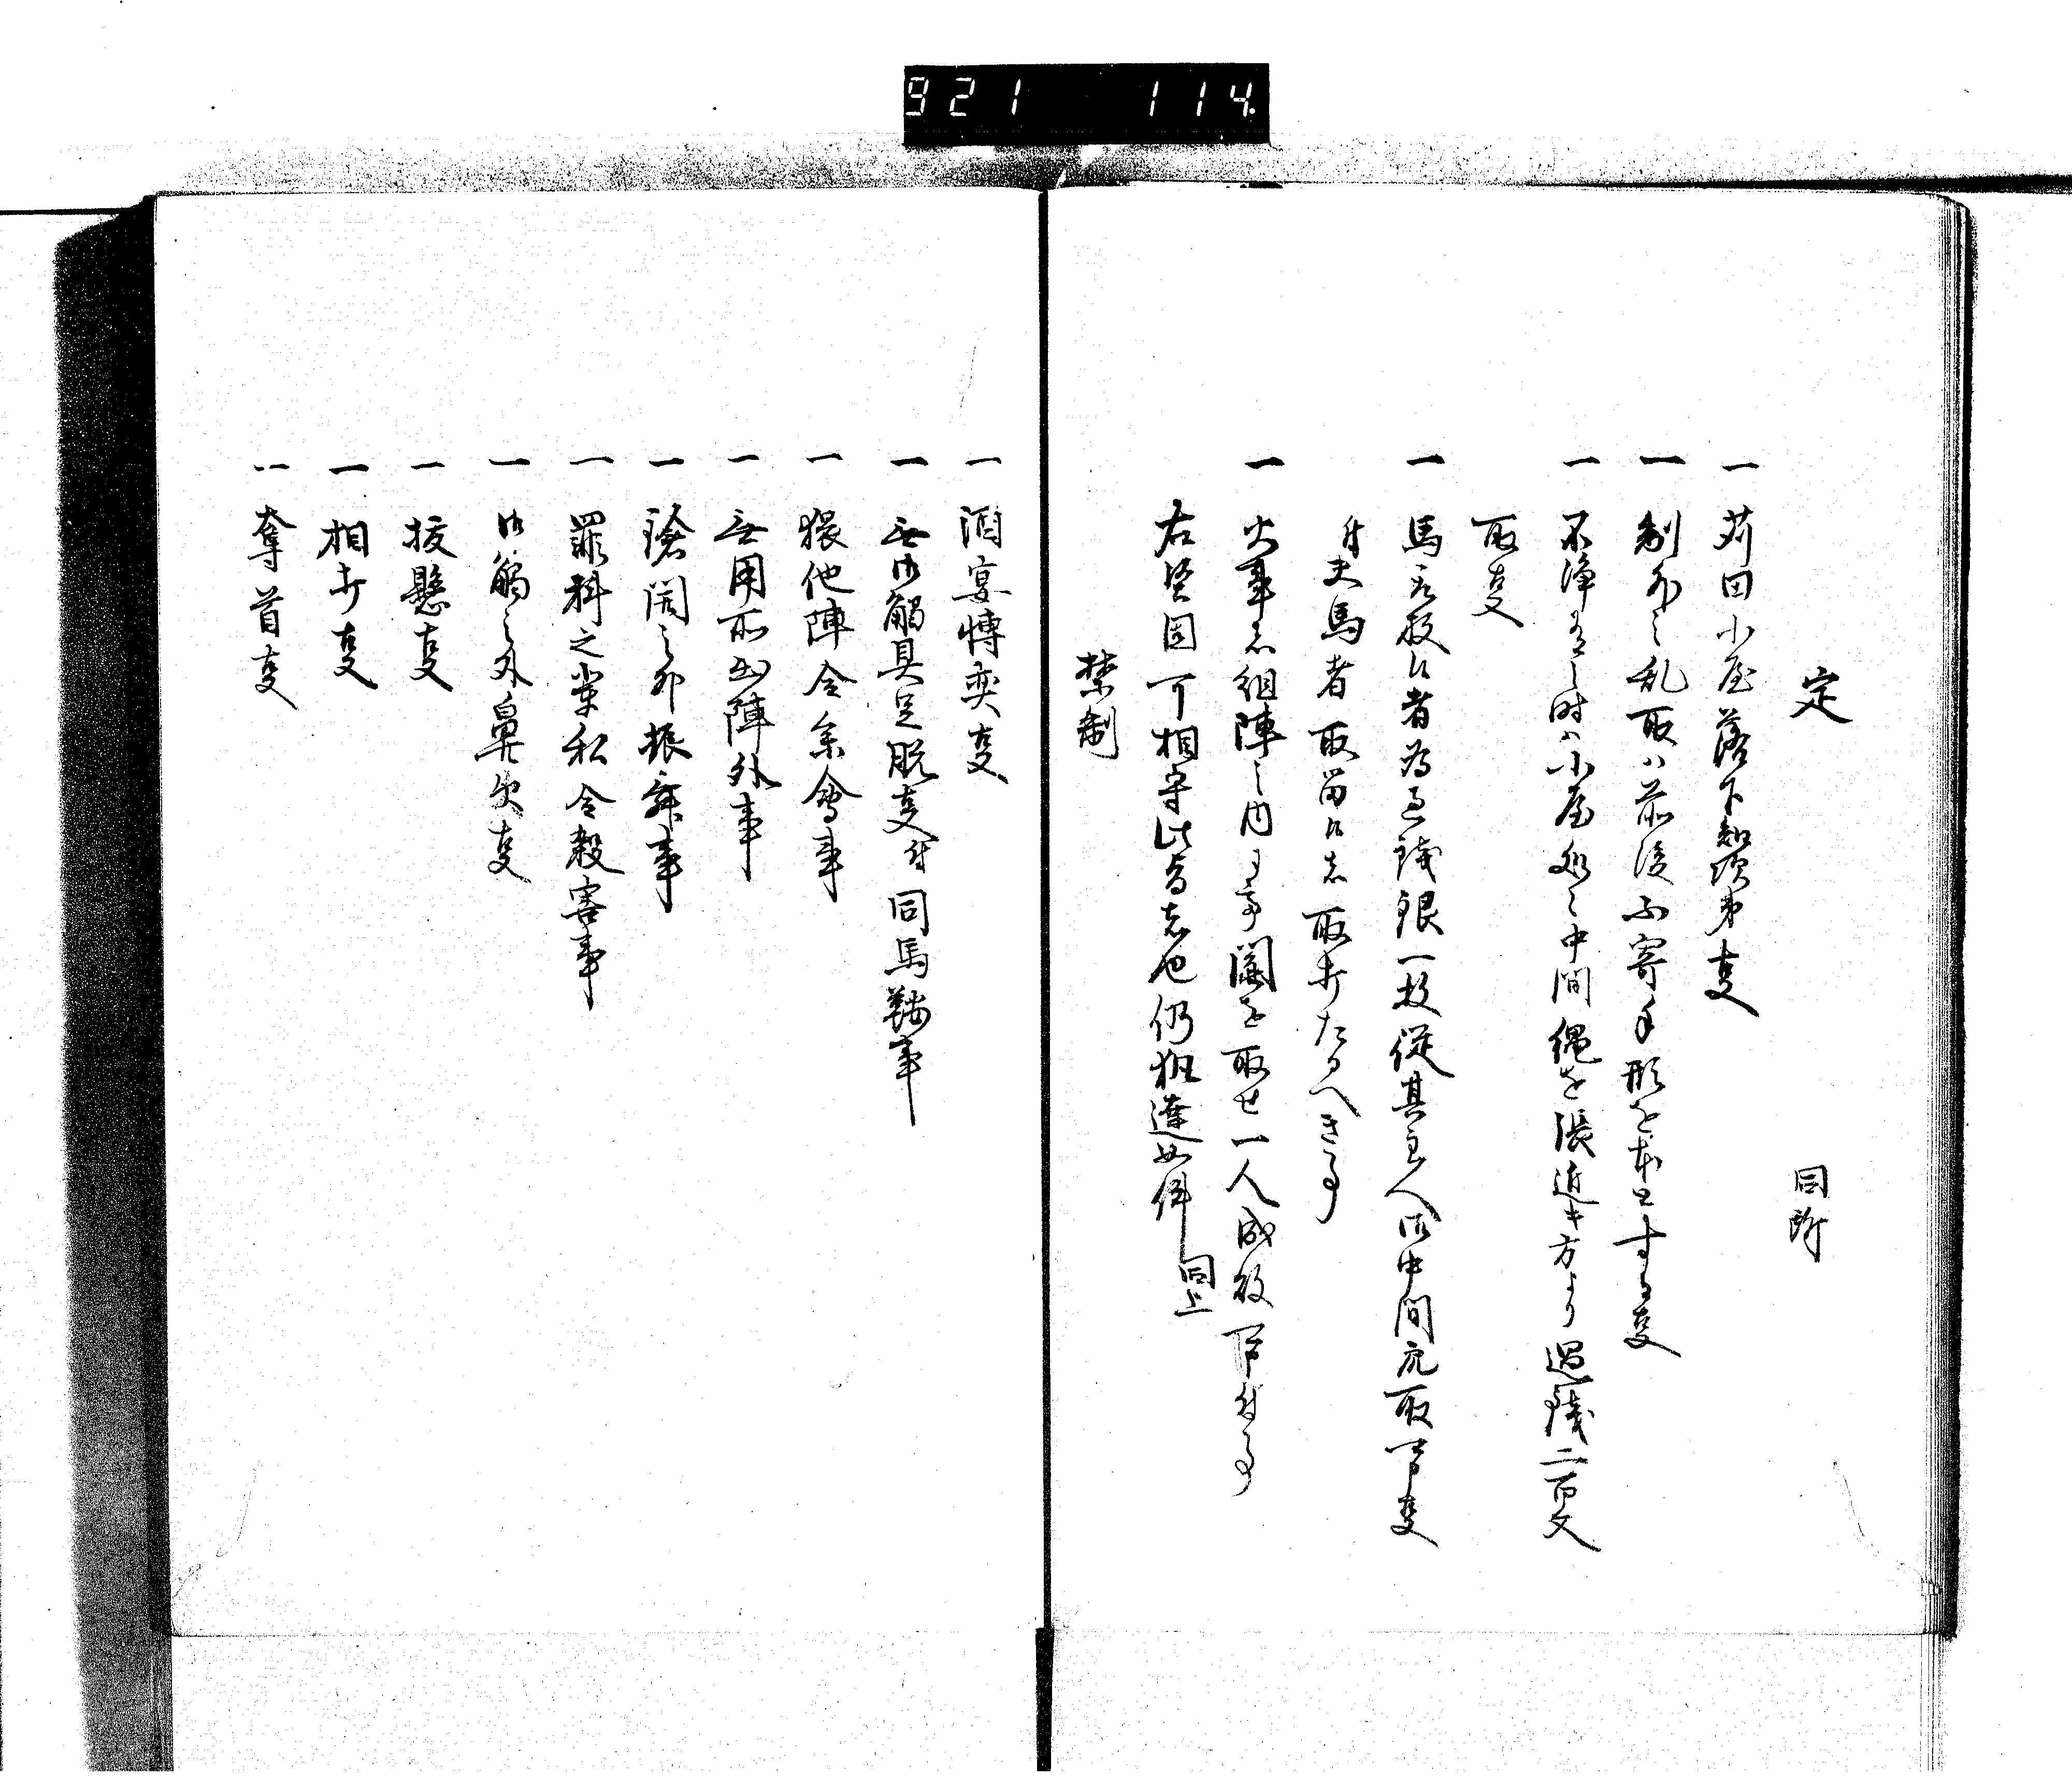 921 114
定 同所
一 苅田小屋落下知次第事
一 制外之乱取ハ前後ニ寄手形を本とする事
一 不浄有之時ハ小屋処之中間縄を張近キ方より過銭二百文
取事
一 馬を放候者為過銭銀一枚従其主人御中間衆取可申事
付夫馬者取留候者取打たるへき事
一 火事者組陣之内より鬮を取せ一人成敗可申付事
右堅固可相守此旨者也仍執達如件 同上
禁制
一 酒宴博奕事
一 無御触具足脱事付同馬鞍事
一 猥他陣令参会事
一 無用而出陣外事
一 鎗鬨之外振舞事
一 罪科之輩私令殺害事
一 御触之外鼻欠事
一 抜懸事
一 相打事
一 奪首事